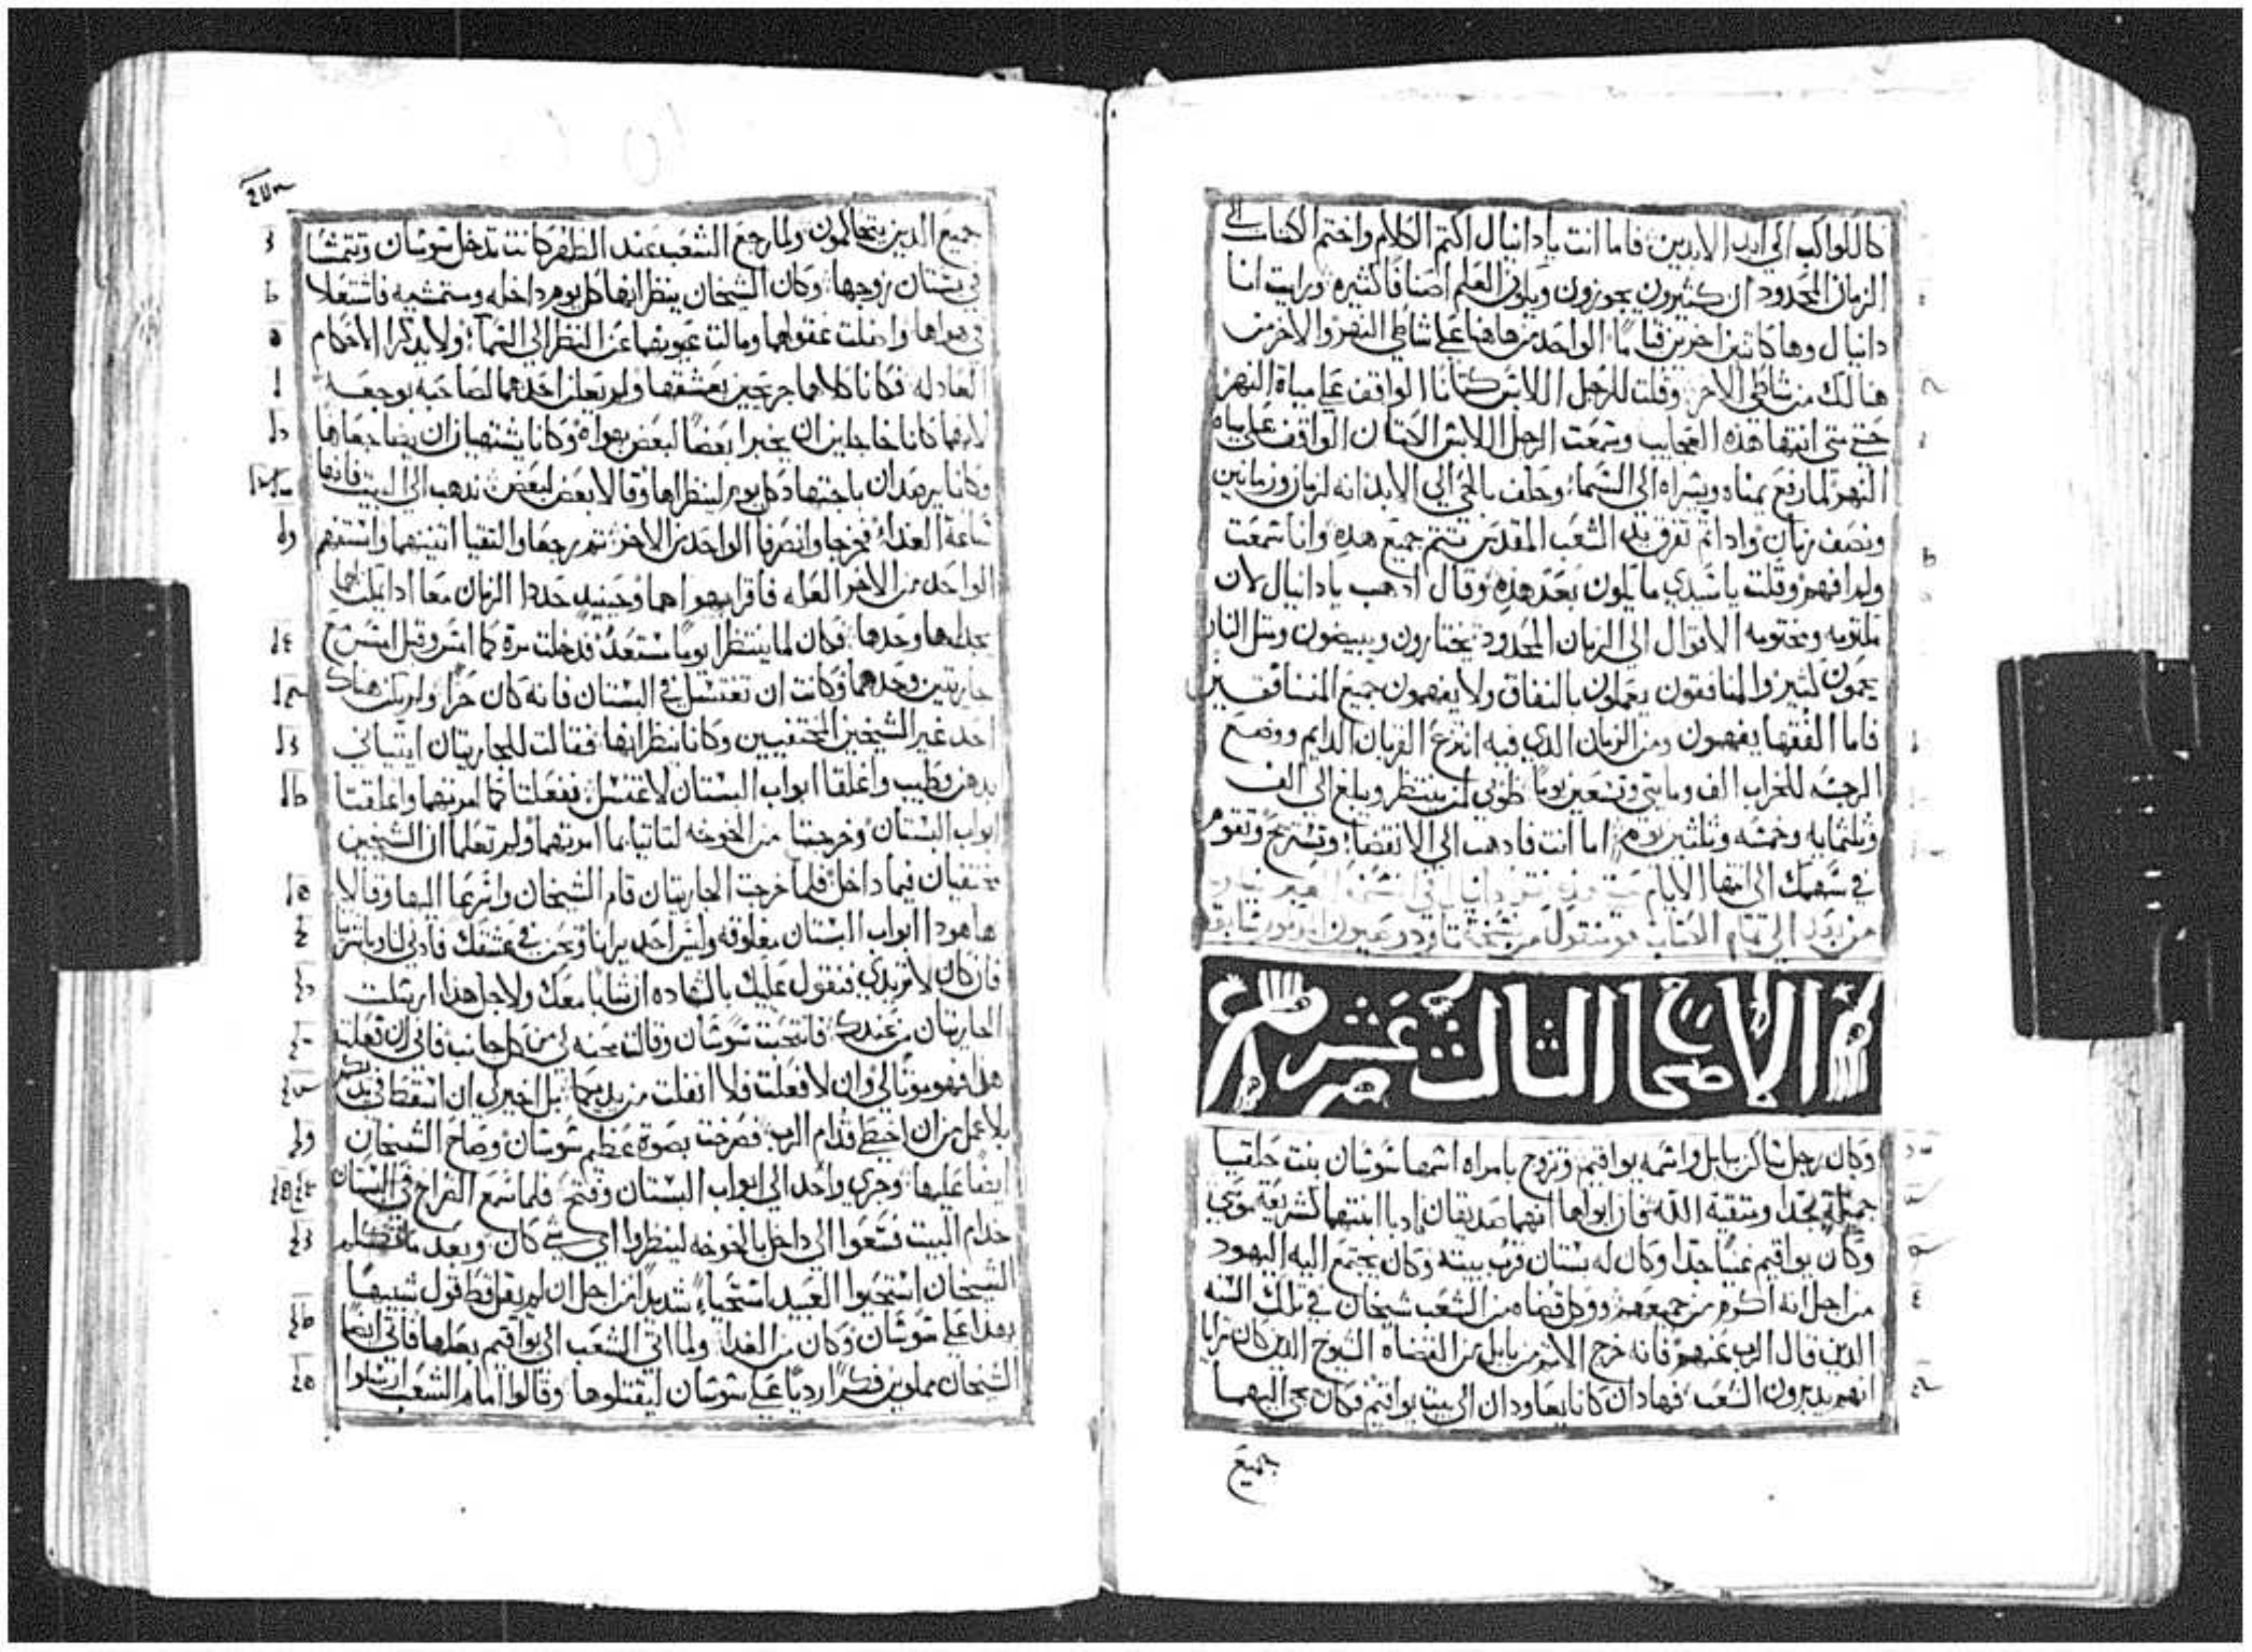 كالكواكب الي ابد الابدين فاما انت يا دانيال اكتم الكلام واختم الكتاب الي
الزمان المحدود ان كثيرون يجوزون ويكون العلم اصنافا كثيره ورايت انا
دانيال وها كاثنين اخرين قياما الواحد من هاهنا علي شاطي النهر والاخر من
هنالك من شاطي الاخر وقلت للرجل اللابس كتانا الواقف علي مياة النهر
حتي متي انتها هذه العجايب وسمعت الرجل اللابس الكتان الواقف علي مياه
النهر لما رفع يمناه ويسراه الي السما وحلف بالحي الي الابد انه لزمان وزمانين
ونصف زمان وادا تم تفرق يد الشعب المقدس تتم جميع هده وانا سمعت
ولم افهم وقلت يا سيدي ما يكون بعد هذه وقال ادهب يا دانيال لان
مكتومه ومختومه الاقوال الي الزمان المحدود يختارون ويبيضون ومثل النار
يحمون كثير والمنافقون يعملون بالنفاق ولا يفهمون جميع المنافقين
فاما الفقها يفهمون ومن الزمان الدي فيه انتزع القربان الدايم ووضع
الرجسه للخراب الف ومايتي وتسعين يوما طوبي لمن ينتظر ويبلغ الي الف
وثلثمايه وخمسه وثلثين يوم اما انت فادهب الي الانقضا وتستريح وتقوم
في سهمك الي انتها الايام
الي تمام الكتاب هو منقول من نسخة تاودوعيون
الاصحاح الثالث عشر
وكان رجل ساكن ببابل واسمه يواقيم وتزوج بامراه اسمها سوسان بنت حلقيا
جميلة جدا ومتقية الله فان ابواها انهما صديقان ادبا ابنتهما كشريعة موسي
وكان يواقيم غنيا جدا وكان له بستان قرب بيته وكان يجتمع اليه اليهود
من اجل انه اكرم من جميعهم ووكل قضاه من الشعب شيخان في تلك السنه
الدين قال الرب عنهم فانه خرج الاثم من بابل من القضاه الشيوخ الدين كان ترايا
انهم يدبرون الشعب فهادان كانا يعاودان الي بيت يواقيم فكان يجي اليهما
جميع
جميع الدين يتحاكمون ولما رجع الشعب عند الظهر كانت تدخل سوسان وتتمشا
في بستان زوجها وكان الشيخان ينظرانها كل يوم داخله ومتمشيه فاشتعلا
في هواها واضلت عقولهما ومالت عيونهما عن النظر الي السما ولا يدكرا الاحكام
العادله فكانا كلاهما جريحين بعشقها ولم يعلن احدهما لصاحبه بوجعه
لانهما كانا خاجلين ان يخبرا بعضا لبعض بهواه وكانا يشتهيان ان يضاجعاها
وكانا يرصدان باجتهاد كل يوم لينظراها وقالا بعض لبعض ندهب الي البيت فانها
ساعة الغداء فخرجا وانصرفا الواحد من الاخر ثم رجعا والتقيا اثنينهما واستفهم
الواحد من الاخر العله فاقرا بهواهما وحينيد حددا الزمان معا ادا يمكنهما
يجداها وحدها فكان لما ينتظرا يوما مستعد فدخلت مرة كما امس وقبل امس مع
جاريتين وحدهما وكانت ان تغتسل في البستان فانه كان حرا ولم يكن هناك
احد غير الشيخين المختفيين وكانا ينظرانها فقالت للجاريتان ايتياني
بدهن وطيب واغلقا ابواب البستان لاغتسل ففعلتا كما امرتهما واغلقتا
ابواب البستان وخرجتا من الخوخه لتاتيا بما امرتهما ولم تعلما ان الشيخين
مختفيان فيما داخل فلما خرجت الجاريتان قام الشيخان واسرعا اليها وقالا
ها هودا ابواب البستان مغلوقه وليس احد يرانا ونحن في عشقك فادني لنا
فان كان لا تريدي فنقول عليك بالشاده ان شابا معك ولاجل هدا ارسلت
الجاريتان من عندك فانتحبت سوسان وقالت محنه لي من كل جانب فاني ان فعلت
هدا فهو موتا لي وان لا فعلت فلا انفلت من يديكما بل اخير لي ان اسقط في يديكم
بلا عمل من ان اخطي قدام الرب فصرخت بصوة عظيم سوسان وصاح الشيخان
ايضا عليها وجري واحد الي ابواب البستان وفتح فلما سمع الصراخ في البستان
خدام البيت فسعوا الي داخل بالخوخه لينظروا اي شي كان وبعد ما تكلم
الشيخان استحيوا العبيد استحياء شديدا من اجل ان لم يقل قط قول شبيها
بهدا علي سوسان وكان من الغد ولما اتي الشعب الي يواقيم بعلها فاتي ايضا
الشيخان مملوين فكرا رديا علي سوسان ليقتلوها وقالوا امام الشعب ارسلوا